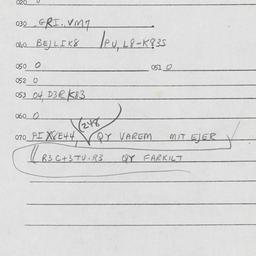 020 0
030 .GRI.VM7
040 BEJLIK8 /PU, L8-K93S
050 0 051 0
052 0
053 04, D3RK83
060 0
248
070 PIX8E44, QY VAREM MIT EJER
R3C+3TU.R3 QY FARKILT